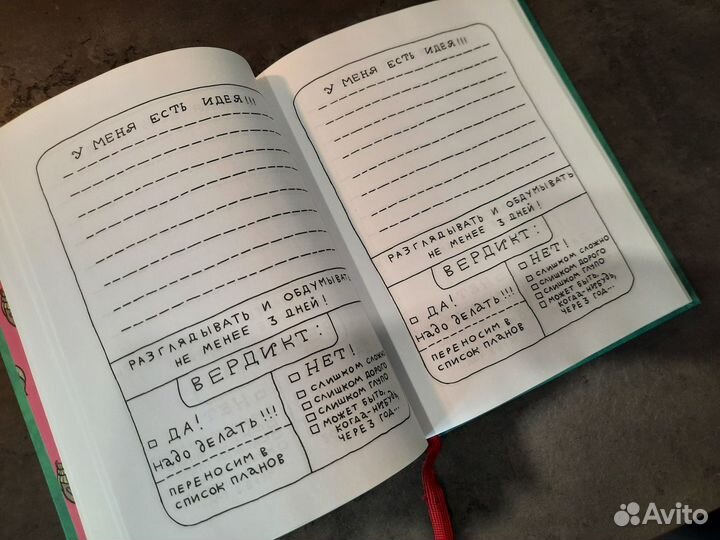 У МЕНЯ ЕСТЬ ИДЕЯ!!!
РАЗГЛЯДЫВАТЬ И ОБДУМЫВАТЬ
НЕ МЕНЕЕ 3 ДНЕЙ!
ВЕРДИКТ:
ДА!
НАДО ДЕЛАТЬ!!!
ПЕРЕНОСИМ В
СПИСОК ПЛАНОВ
НЕТ!
СЛИШКОМ СЛОЖНО
СЛИШКОМ ДОРОГО
СЛИШКОМ ГЛУПО
МОЖЕТ БЫТЬ,
КОГДА-НИБУДЬ,
ЧЕРЕЗ ГОД...
У МЕНЯ ЕСТЬ ИДЕЯ!!!
РАЗГЛЯДЫВАТЬ И ОБДУМЫВАТЬ
НЕ МЕНЕЕ 3 ДНЕЙ!
ВЕРДИКТ:
ДА!
НАДО ДЕЛАТЬ!!!
ПЕРЕНОСИМ В
СПИСОК ПЛАНОВ
НЕТ!
СЛИШКОМ СЛОЖНО
СЛИШКОМ ДОРОГО
СЛИШКОМ ГЛУПО
МОЖЕТ БЫТЬ,
КОГДА-НИБУДЬ,
ЧЕРЕЗ ГОД...
Avito